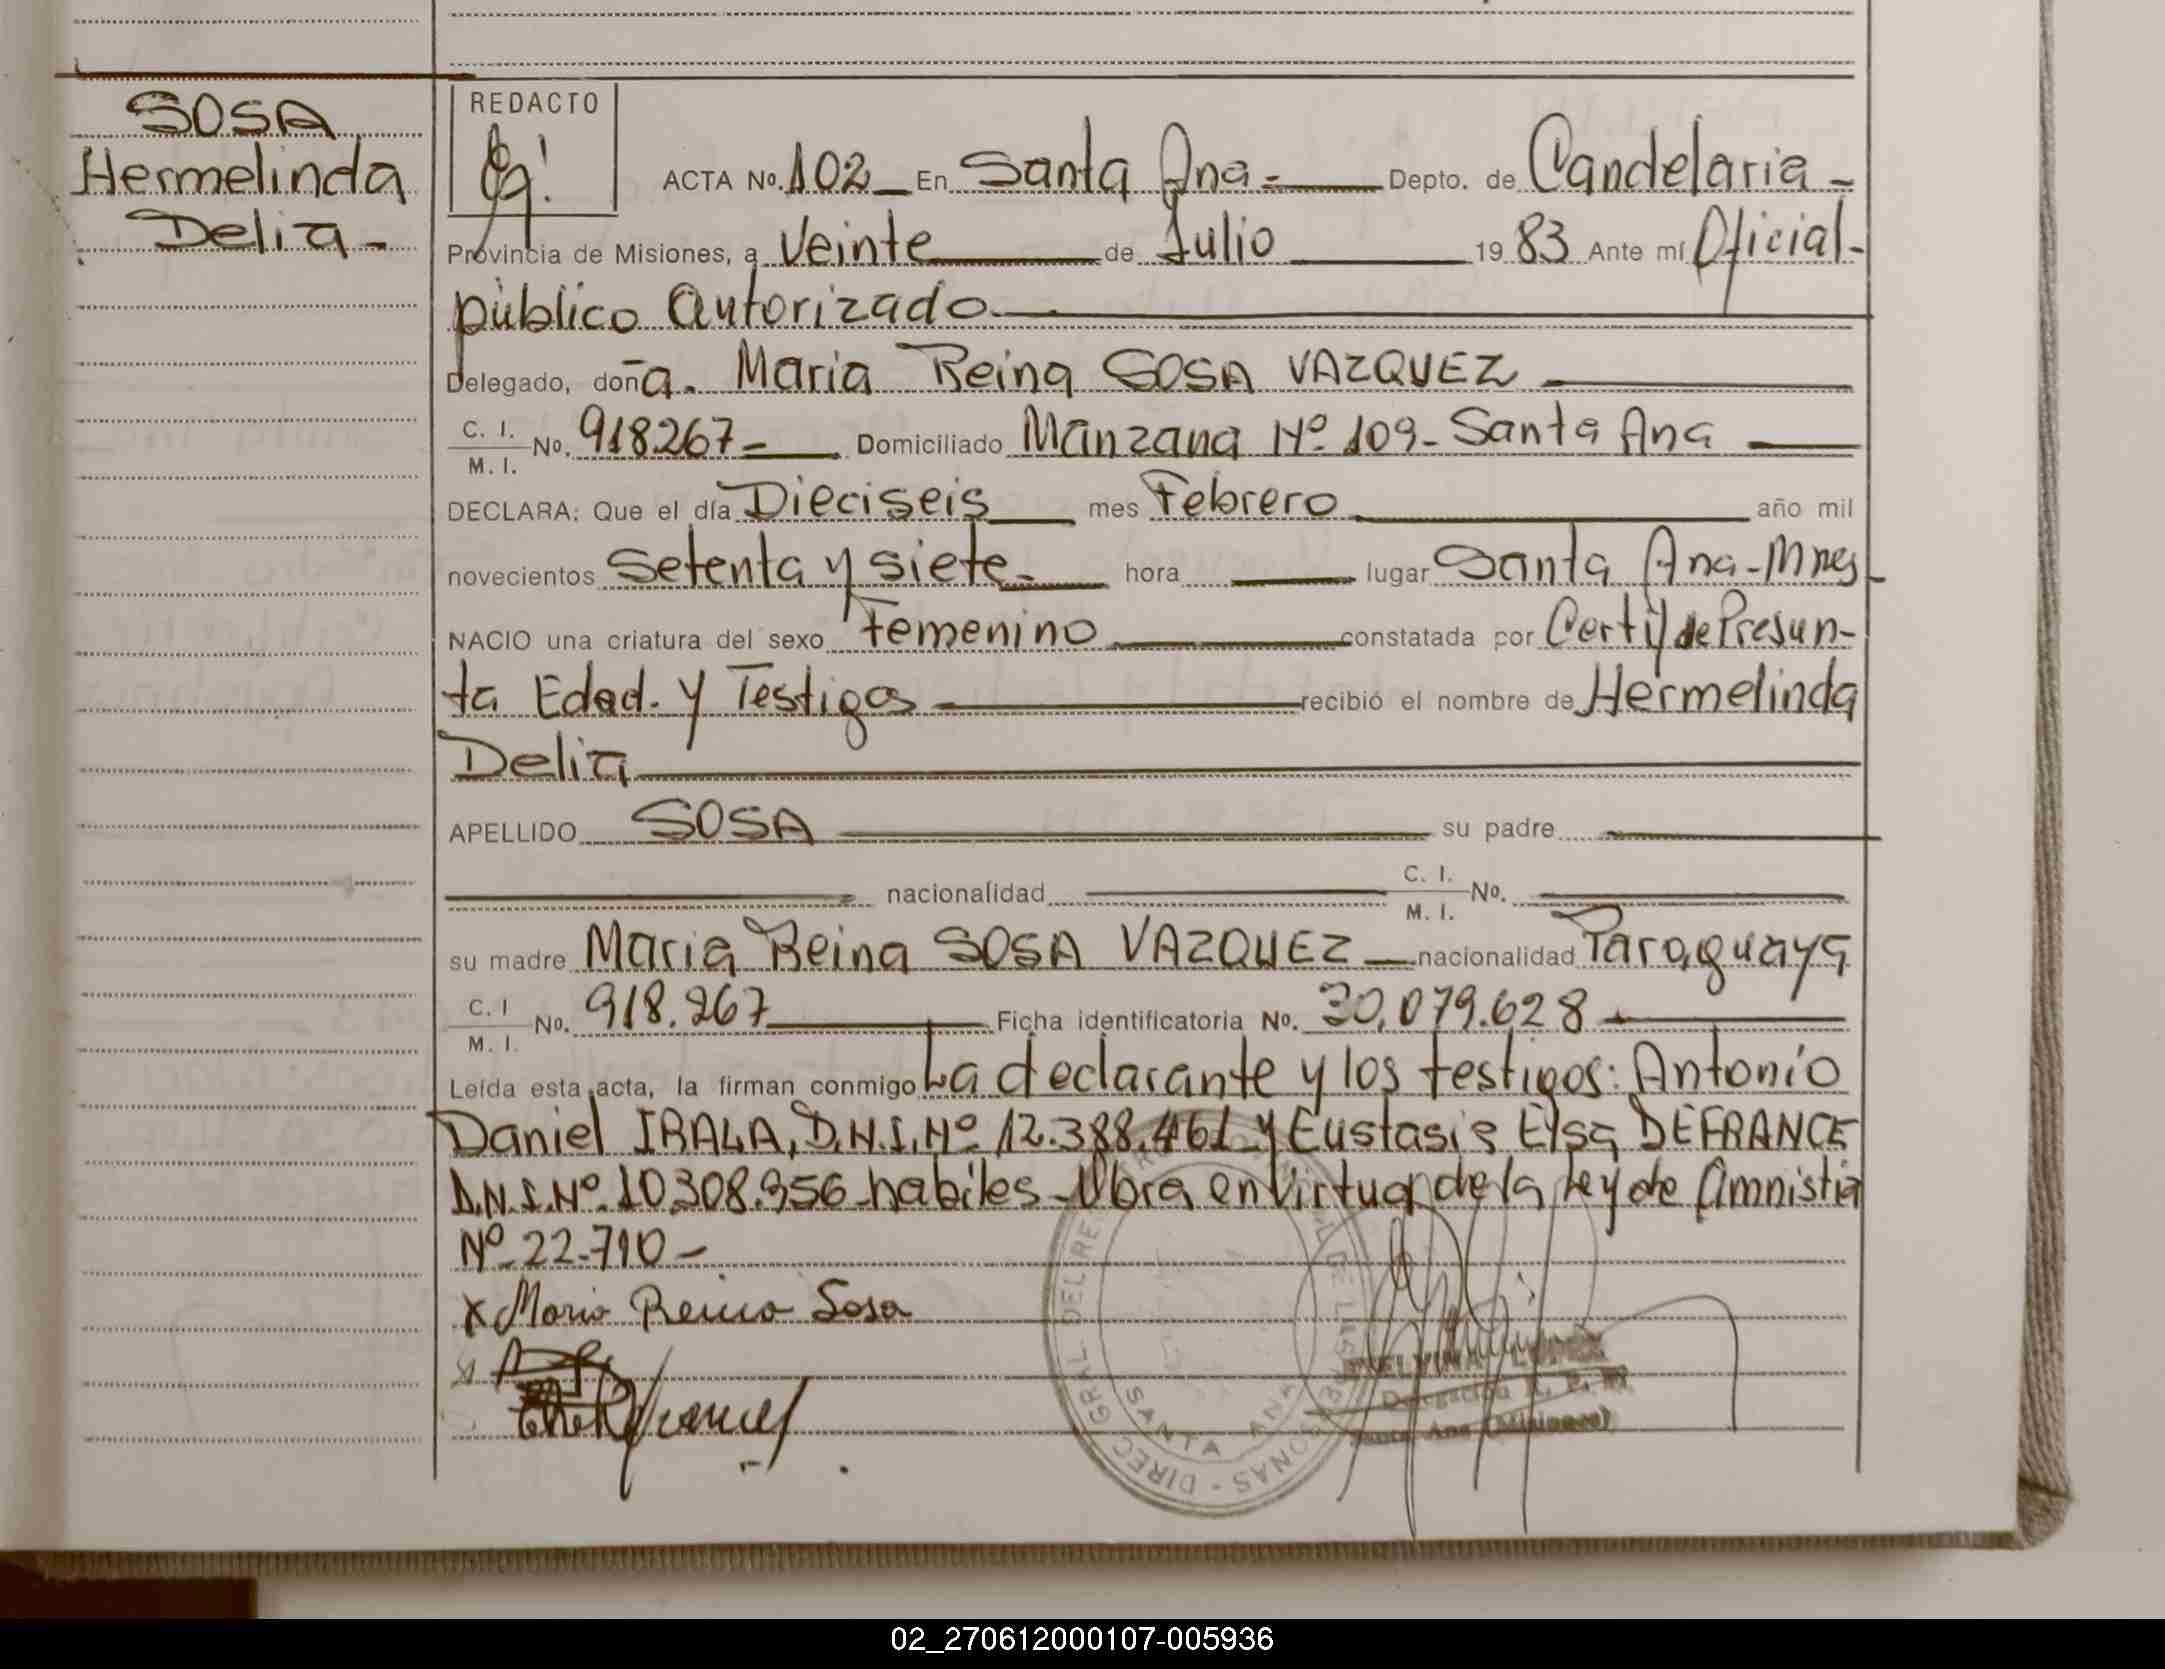 SOSA
Hermelinda
Delia -
REDACTO
ACTA No. 102 - En Santa Ana - Depto. de Candelaria -
Provincia de Misiones, a Veinte de Julio 19 83 Ante mí Oficial -
público Autorizado
Delegado, doña. Maria Reina SOSA VAZQUEZ
C. I. M. I. No. 918267 - Domiciliado Manzana Nº 109 - Santa Ana
DECLARA: Que el día Dieciseis mes Febrero año mil
novecientos Setenta y siete - hora lugar Santa Ana - Mnes -
NACIO una criatura del sexo Femenino constatada por Certif de Presun-
ta Edad. y Testigos recibió el nombre de Hermelinda
Delia
APELLIDO SOSA su padre
nacionalidad C. I. M. I. No.
su madre Maria Reina SOSA VAZQUEZ - nacionalidad Paraguaya
C. I M. I. No. 918.267 Ficha identificatoria No. 30.079.628 -
Leída esta acta, la firman conmigo La declarante y los testigos: Antonio
Daniel IRALA, D.N.I. Nº 12.388.461 y Eustasia Elsa DEFRANCE
D.N.I. Nº 10.308.956 - habiles - Obra en Virtud de la Ley de Amnistia
Nº 22.710 -
x Maria Reina Sosa
SANTA ANA
02_270612000107-005936